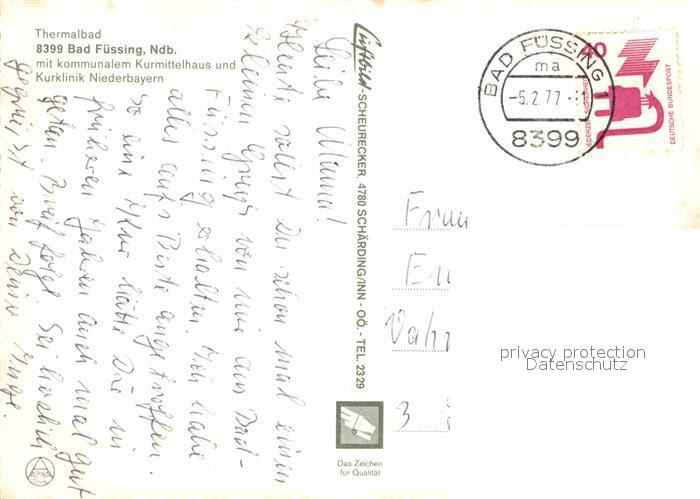 Thermalbad
8399 Bad Füssing, Ndb.
mit kommunalem Kurmittelhaus und
Kurklinik Niederbayern
Liebe Mama!
Heute sollst Du schon mal einen
kleinen Gruß von mir aus Bad-
Füssing erhalten. Ich habe
alles aufs Beste angetroffen.
So eine Kur hätte Dir in
früheren Jahren auch mal gut
getan. Brief folgt. Sei herzlich
gegrüßt von Deiner Inge.
Luftbild-SCHEURECKER, 4780 SCHÄRDING/INN - OÖ. - TEL. 2329
BAD FÜSSING 1
ma
-5.2.77-
8399
40
JEDERZEIT SICHERHEIT
DEUTSCHE BUNDESPOST
Frau
Vahr
3
privacy protection
Datenschutz
Das Zeichen
für Qualität
ALPINA